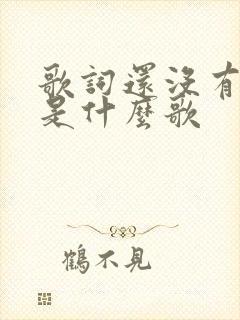 歌詞還沒有
是什麼歌
鶴不見